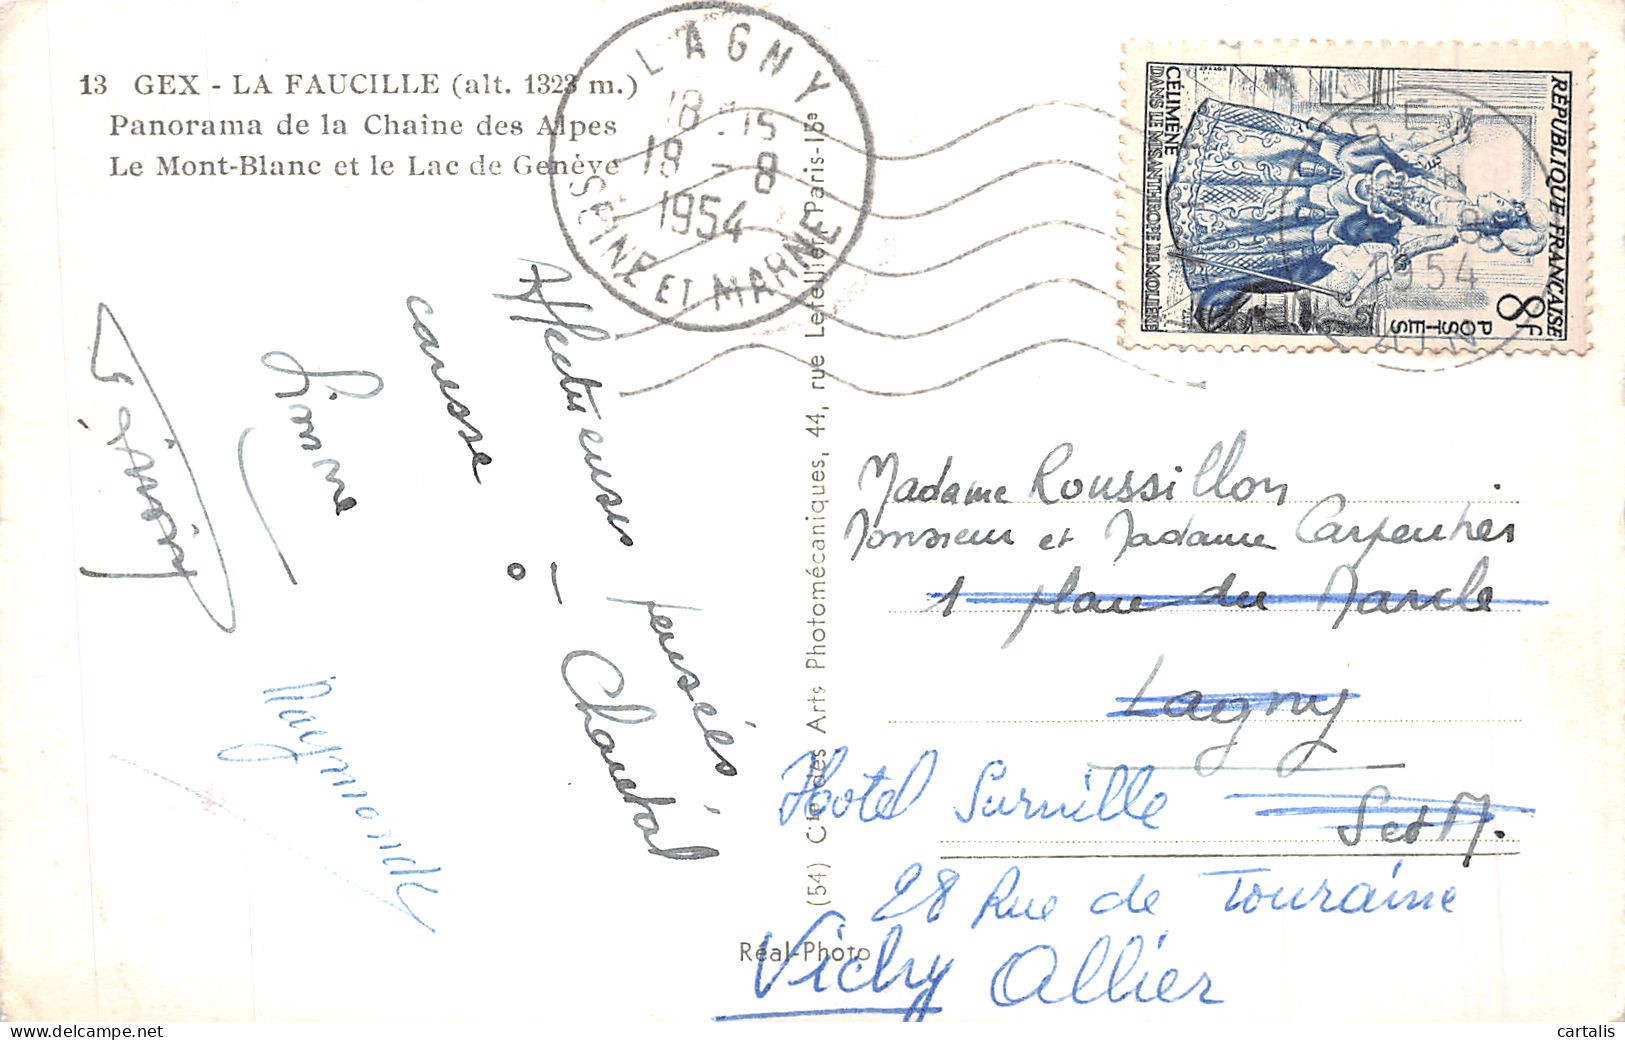 13 GEX - LA FAUCILLE (alt. 1323 m.)
Panorama de la Chaîne des Alpes
Le Mont-Blanc et le Lac de Genève
LAGNY
18 - 15
18 - 8
1954
SEINE ET MARNE
RÉPUBLIQUE FRANÇAISE
8F
POSTES
CÉLIMÈNE
DANS LE MISANTHROPE DE MOLIÈRE
GEX
1954
AIN
Affectueuses pensées
caresse - Chantal
Simone
Raymonde
(54) Cie des Arts Photomécaniques, 44, rue Letellier, Paris-15e
Réal-Photo
Madame Roussillon
Monsieur et Madame Carpentier
1 place du Marché
Lagny
S et M.
Hotel Surville
28 Rue de Touraine
Vichy Allier
cartalis
www.delcampe.net